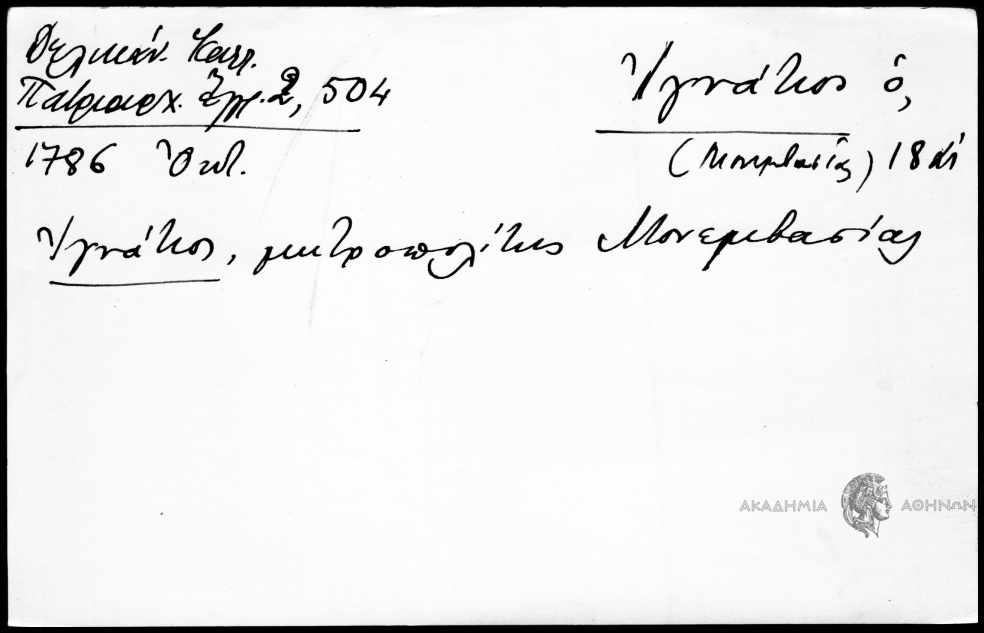 Δελικάν. Καλλ.
Πατριαρχ. Ἔγγρ. 2, 504
1786 Ὀκτ.
Ἰγνάτιος ὁ,
(Μονεμβασίας) 18 αἰ
Ἰγνάτιος, μητροπολίτης Μονεμβασίας
ΑΚΑΔΗΜΙΑ ΑΘΗΝΩΝ